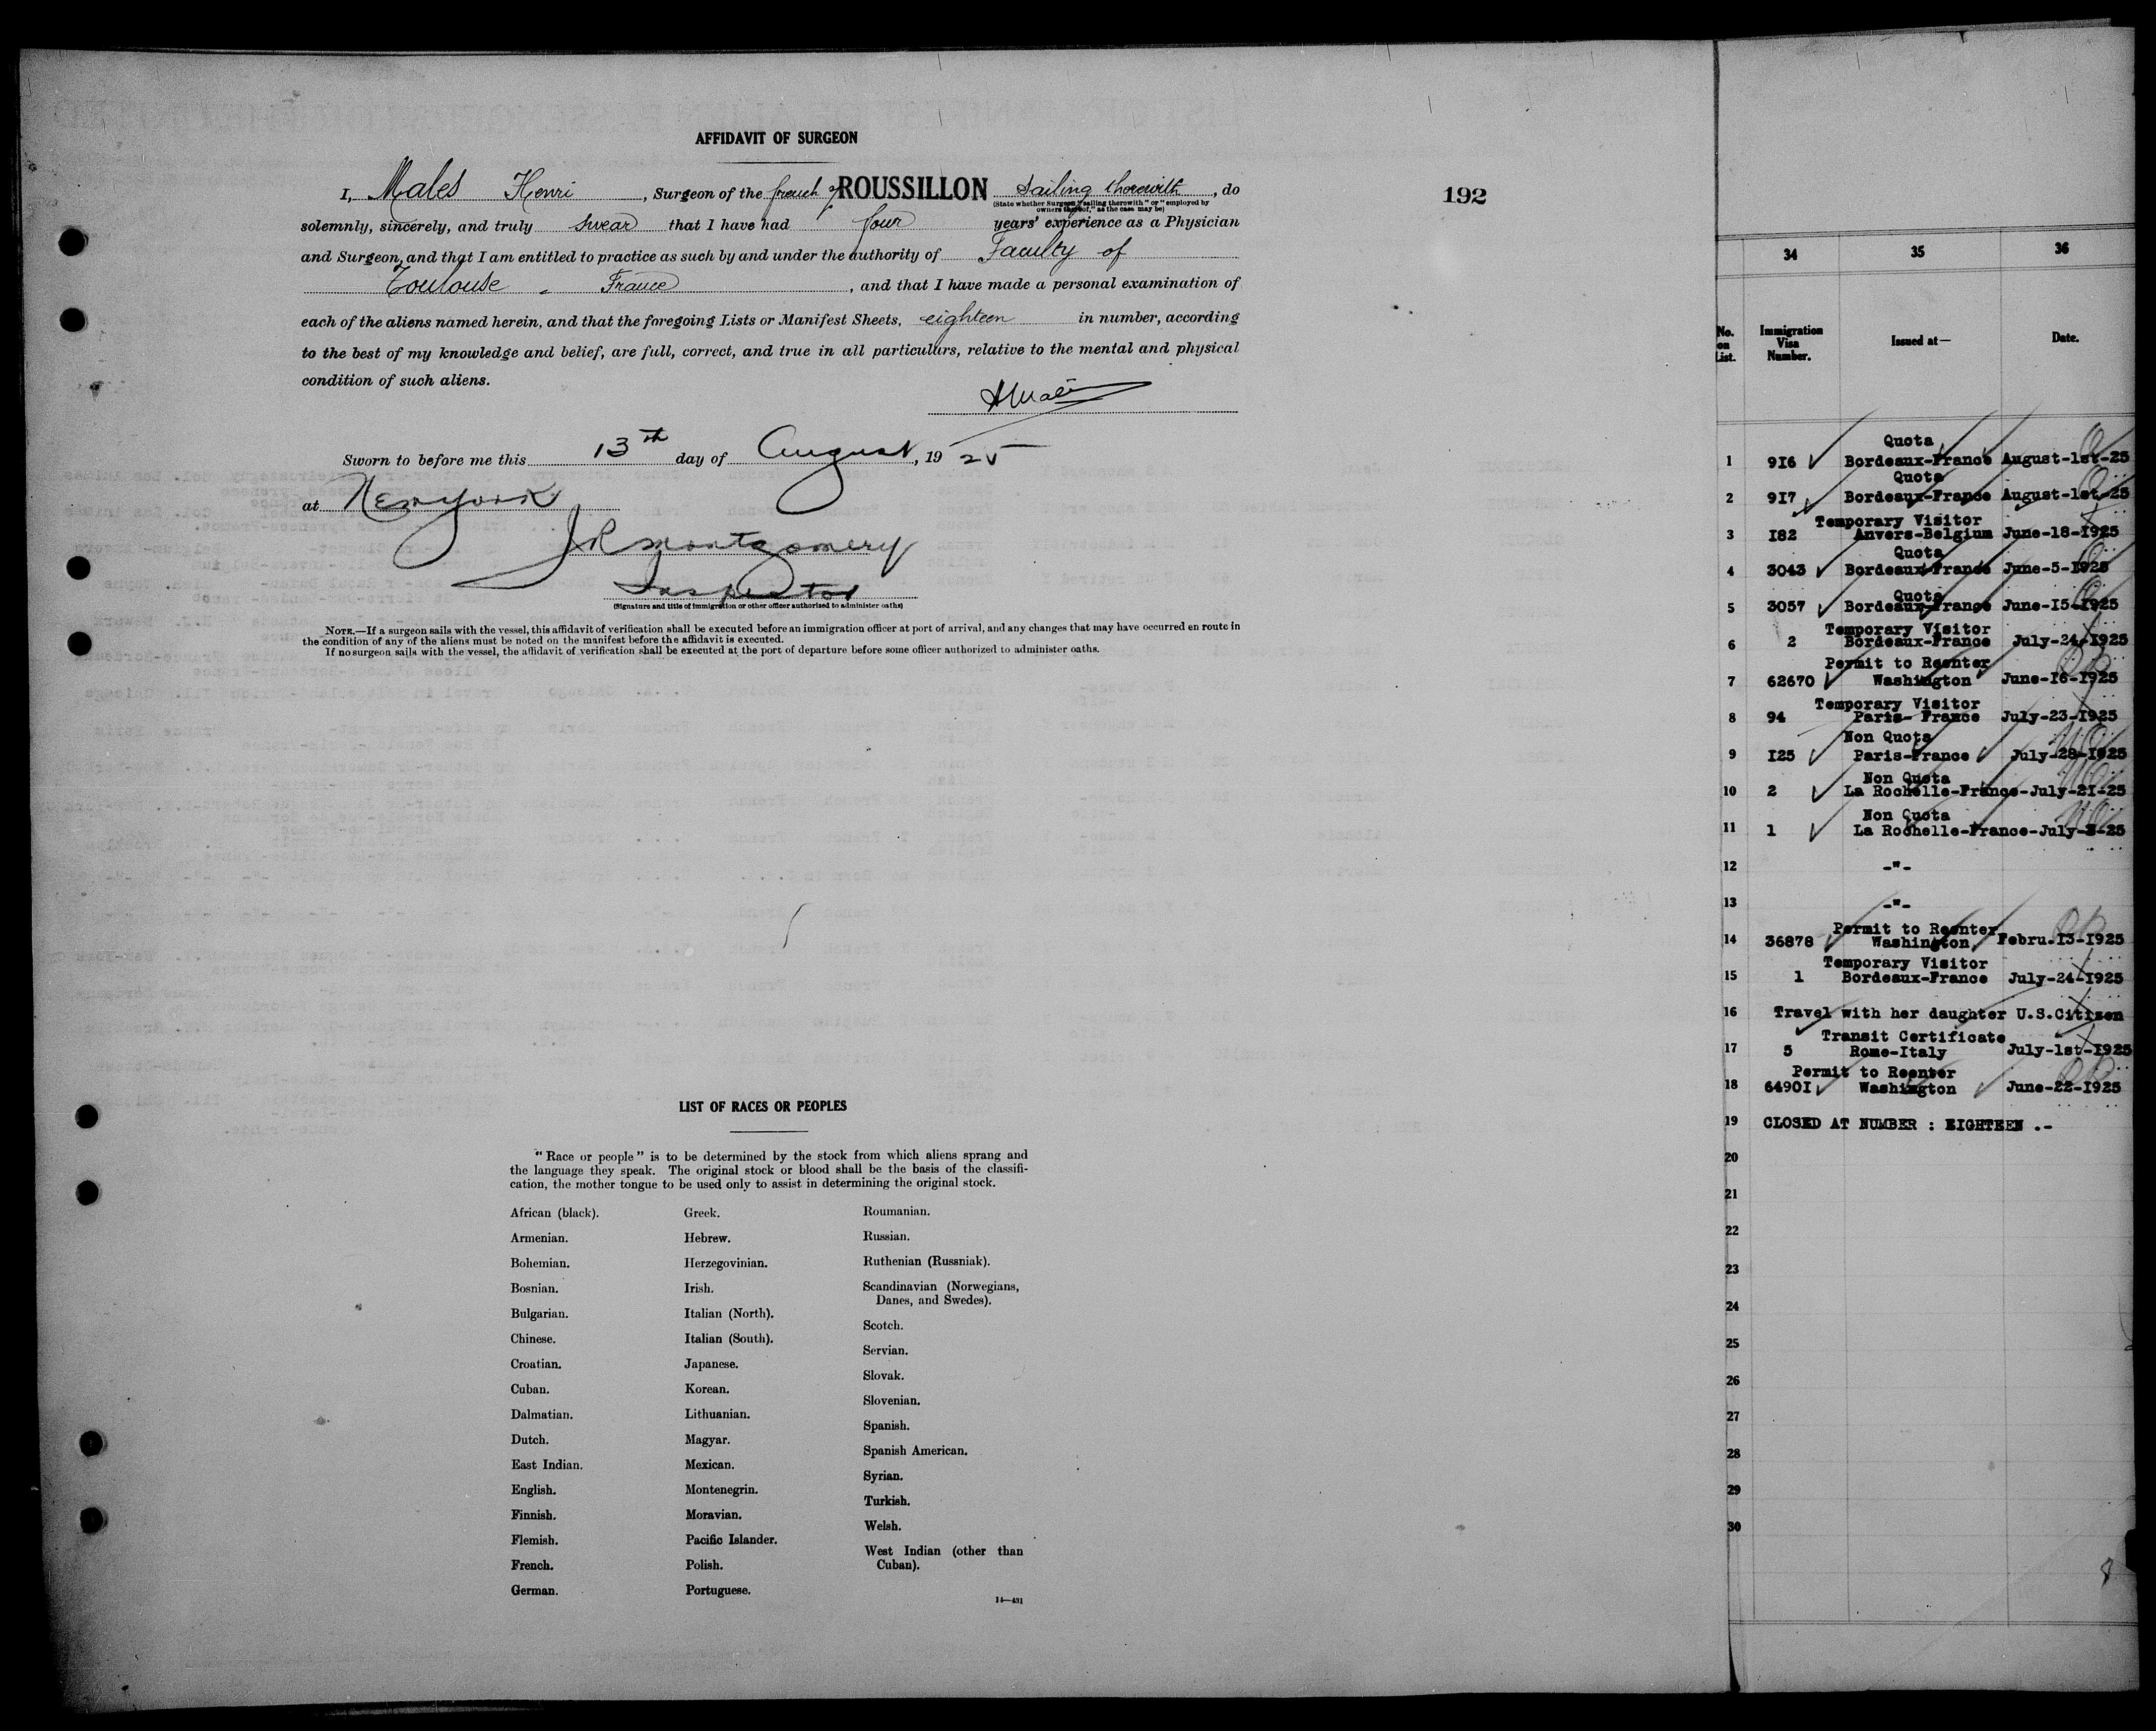 AFFIDAVIT OF SURGEON
I, Males Henri, Surgeon of the french ROUSSILLON Sailing therewith, do
(State whether Surgeon "sailing therewith" or "employed by
owners thereof," as the case may be)
solemnly, sincerely, and truly swear that I have had four years' experience as a Physician
and Surgeon, and that I am entitled to practice as such by and under the authority of Faculty of
Toulouse - France, and that I have made a personal examination of
each of the aliens named herein, and that the foregoing Lists or Manifest Sheets, eighteen in number, according
to the best of my knowledge and belief, are full, correct, and true in all particulars, relative to the mental and physical
condition of such aliens.
Sworn to before me this 13th day of August, 1925
at New york
J R Montgomery
Inspector
(Signature and title of immigration or other officer authorized to administer oaths)
NOTE.—If a surgeon sails with the vessel, this affidavit of verification shall be executed before an immigration officer at port of arrival, and any changes that may have occurred en route in
the condition of any of the aliens must be noted on the manifest before the affidavit is executed.
If no surgeon sails with the vessel, the affidavit of verification shall be executed at the port of departure before some officer authorized to administer oaths.
LIST OF RACES OR PEOPLES
"Race or people" is to be determined by the stock from which aliens sprang and
the language they speak. The original stock or blood shall be the basis of the classifi-
cation, the mother tongue to be used only to assist in determining the original stock.
African (black).
Armenian.
Bohemian.
Bosnian.
Bulgarian.
Chinese.
Croatian.
Cuban.
Dalmatian.
Dutch.
East Indian.
English.
Finnish.
Flemish.
French.
German.
Greek.
Hebrew.
Herzegovinian.
Irish.
Italian (North).
Italian (South).
Japanese.
Korean.
Lithuanian.
Magyar.
Mexican.
Montenegrin.
Moravian.
Pacific Islander.
Polish.
Portuguese.
Roumanian.
Russian.
Ruthenian (Russniak).
Scandinavian (Norwegians,
Danes, and Swedes).
Scotch.
Servian.
Slovak.
Slovenian.
Spanish.
Spanish American.
Syrian.
Turkish.
Welsh.
West Indian (other than
Cuban).
14—431
192
34 35 36
No.
on
List.
Immigration
Visa
Number.
Issued at—
Date.
Quota
1 916 Bordeaux-France August-1st-25
Quota
2 917 Bordeaux-France August-1st-25
Temporary Visitor
3 I82 Anvers-Belgium June-18-1925
Quota
4 3043 Bordeaux-France June-5-1925
Quota
5 3057 Bordeaux-France June-I5-1925
Temporary Visitor
6 2 Bordeaux-France July-24-1925
Permit to Reenter
7 62670 Washington June-I6-1925
Temporary Visitor
8 94 Paris- France July-23-1925
Non Quota
9 I25 Paris-France July-28-1925
Non Quota
10 2 La Rochelle-France-July-2I-25
Non Quota
11 1 La Rochelle-France-July- -25
12 -"-
13 -"-
Permit to Reenter
14 36878 Washington Febru.I3-I925
Temporary Visitor
15 1 Bordeaux-France July-24-I925
16 Travel with her daughter U.S.Citizen
Transit Certificate
17 5 Rome-Italy July-1st-1925
Permit to Reenter
18 6490I Washington June-22-I925
19 CLOSED AT NUMBER : EIGHTEEN .-
20
21
22
23
24
25
26
27
28
29
30